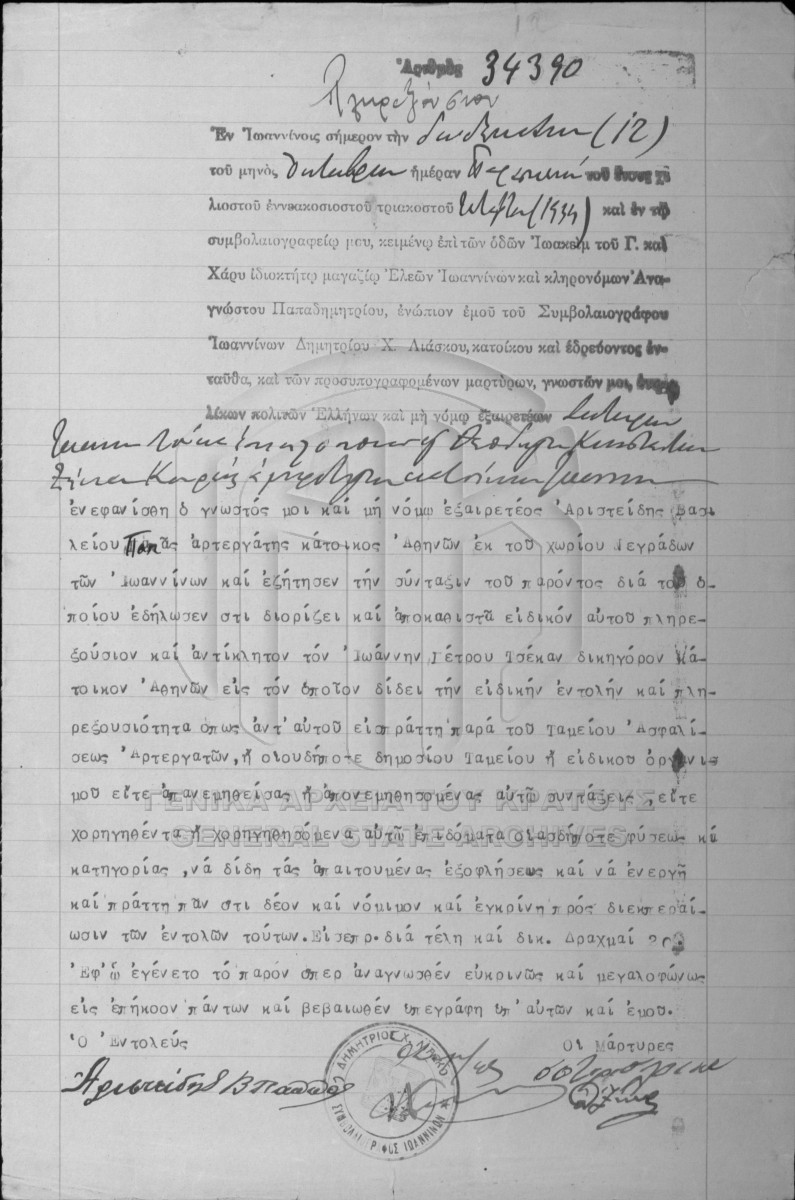 Ἀριθμὸς 34390
Πληρεξούσιον
Ἐν Ἰωαννίνοις σήμερον τὴν δωδεκάτην (12)
τοῦ μηνὸς Ὀκτωβρίου ἡμέραν Παρασκευὴ τοῦ ἔτους χι
λιοστοῦ ἐννεακοσιοστοῦ τριακοστοῦ τετάρτου (1934) καὶ ἐν τῷ
συμβολαιογραφείῳ μου, κειμένῳ ἐπὶ τῶν ὁδῶν Ἰωακεὶμ τοῦ Γ. καὶ
Χάρυ ἰδιοκτήτῳ μαγαζίῳ Ἐλεῶν Ἰωαννίνων καὶ κληρονόμων Ἀνα-
γνώστου Παπαδημητρίου, ἐνώπιον ἐμοῦ τοῦ Συμβολαιογράφου
Ἰωαννίνων Δημητρίου Χ. Λιάσκου, κατοίκου καὶ ἑδρεύοντος ἐν-
ταῦθα, καὶ τῶν προσυπογραφομένων μαρτύρων, γνωστῶν μοι, ἐνηλ
λίκων πολιτῶν Ἑλλήνων καὶ μὴ νόμῳ ἐξαιρετέων Σωτηρίου
Ἰωάννου
ἐνεφανίσθη ὁ γνωστός μοι καί μή νόμῳ ἐξαιρετέος Ἀριστείδης Βασι
λείου Παπᾶς ἀρτεργάτης κάτοικος Ἀθηνῶν ἐκ τοῦ χωρίου Πεγράδων
τῶν Ἰωαννίνων καί ἐζήτησεν τήν σύνταξιν τοῦ παρόντος διά τοῦ ὁ-
ποίου ἐδήλωσεν ὅτι διορίζει καί ἀποκαθιστᾶ εἰδικόν αὐτοῦ πληρε-
ξούσιον καί ἀντίκλητον τόν Ἰωάννην Πέτρου Τσέκαν δικηγόρον κά-
τοικον Ἀθηνῶν εἰς τόν ὁποῖον δίδει τήν εἰδικήν ἐντολήν καί πλη-
ρεξουσιότητα ὅπως ἀντ'αὐτοῦ εἰσπράττη παρά τοῦ Ταμείου Ἀσφαλί-
σεως Ἀρτεργατῶν, ἤ οἱουδήποτε δημοσίου Ταμείου ἤ εἰδικοῦ ὀργανισ-
μοῦ εἴτε ἀπανεμηθείσας ἤ ἀπονεμηθησομένας αὐτῷ συντάξεις, εἴτε
χορηγηθέντα ἤ χορηγηθησόμενα αὐτῷ ἐπιδόματα οἱασδήποτε φύσεως κά
κατηγορίας, νά δίδη τάς ἀπαιτουμένας ἐξοφλήσεις καί νά ἐνεργῆ
καί πράττη πᾶν ὅτι δέον καί νόμιμον καί ἐγκρίνη πρός διεκπεραί-
ωσιν τῶν ἐντολῶν τούτων. Εἰσεπρ. διά τέλη καί δικ. Δραχμαί
Ἐφ' ᾧ ἐγένετο τό παρόν ὅπερ ἀναγνωσθέν εὐκρινῶς καί μεγαλοφώνως
εἰς ἐπήκοον πάντων καί βεβαιωθέν ὑπεγράφη ὑπ'αὐτῶν καί ἐμοῦ.
Ὁ Ἐντολεύς
Οἱ Μάρτυρες
Ἀριστείδης Β Παππᾶς
ΔΗΜΗΤΡΙΟΣ Χ. ΛΙΑΣΚΟΣ
ΣΥΜΒΟΛΑΙΟΓΡΑΦΟΣ ΙΩΑΝΝΙΝΩΝ
ΓΕΝΙΚΑ ΑΡΧΕΙΑ ΤΟΥ ΚΡΑΤΟΥΣ
GENERAL STATE ARCHIVES